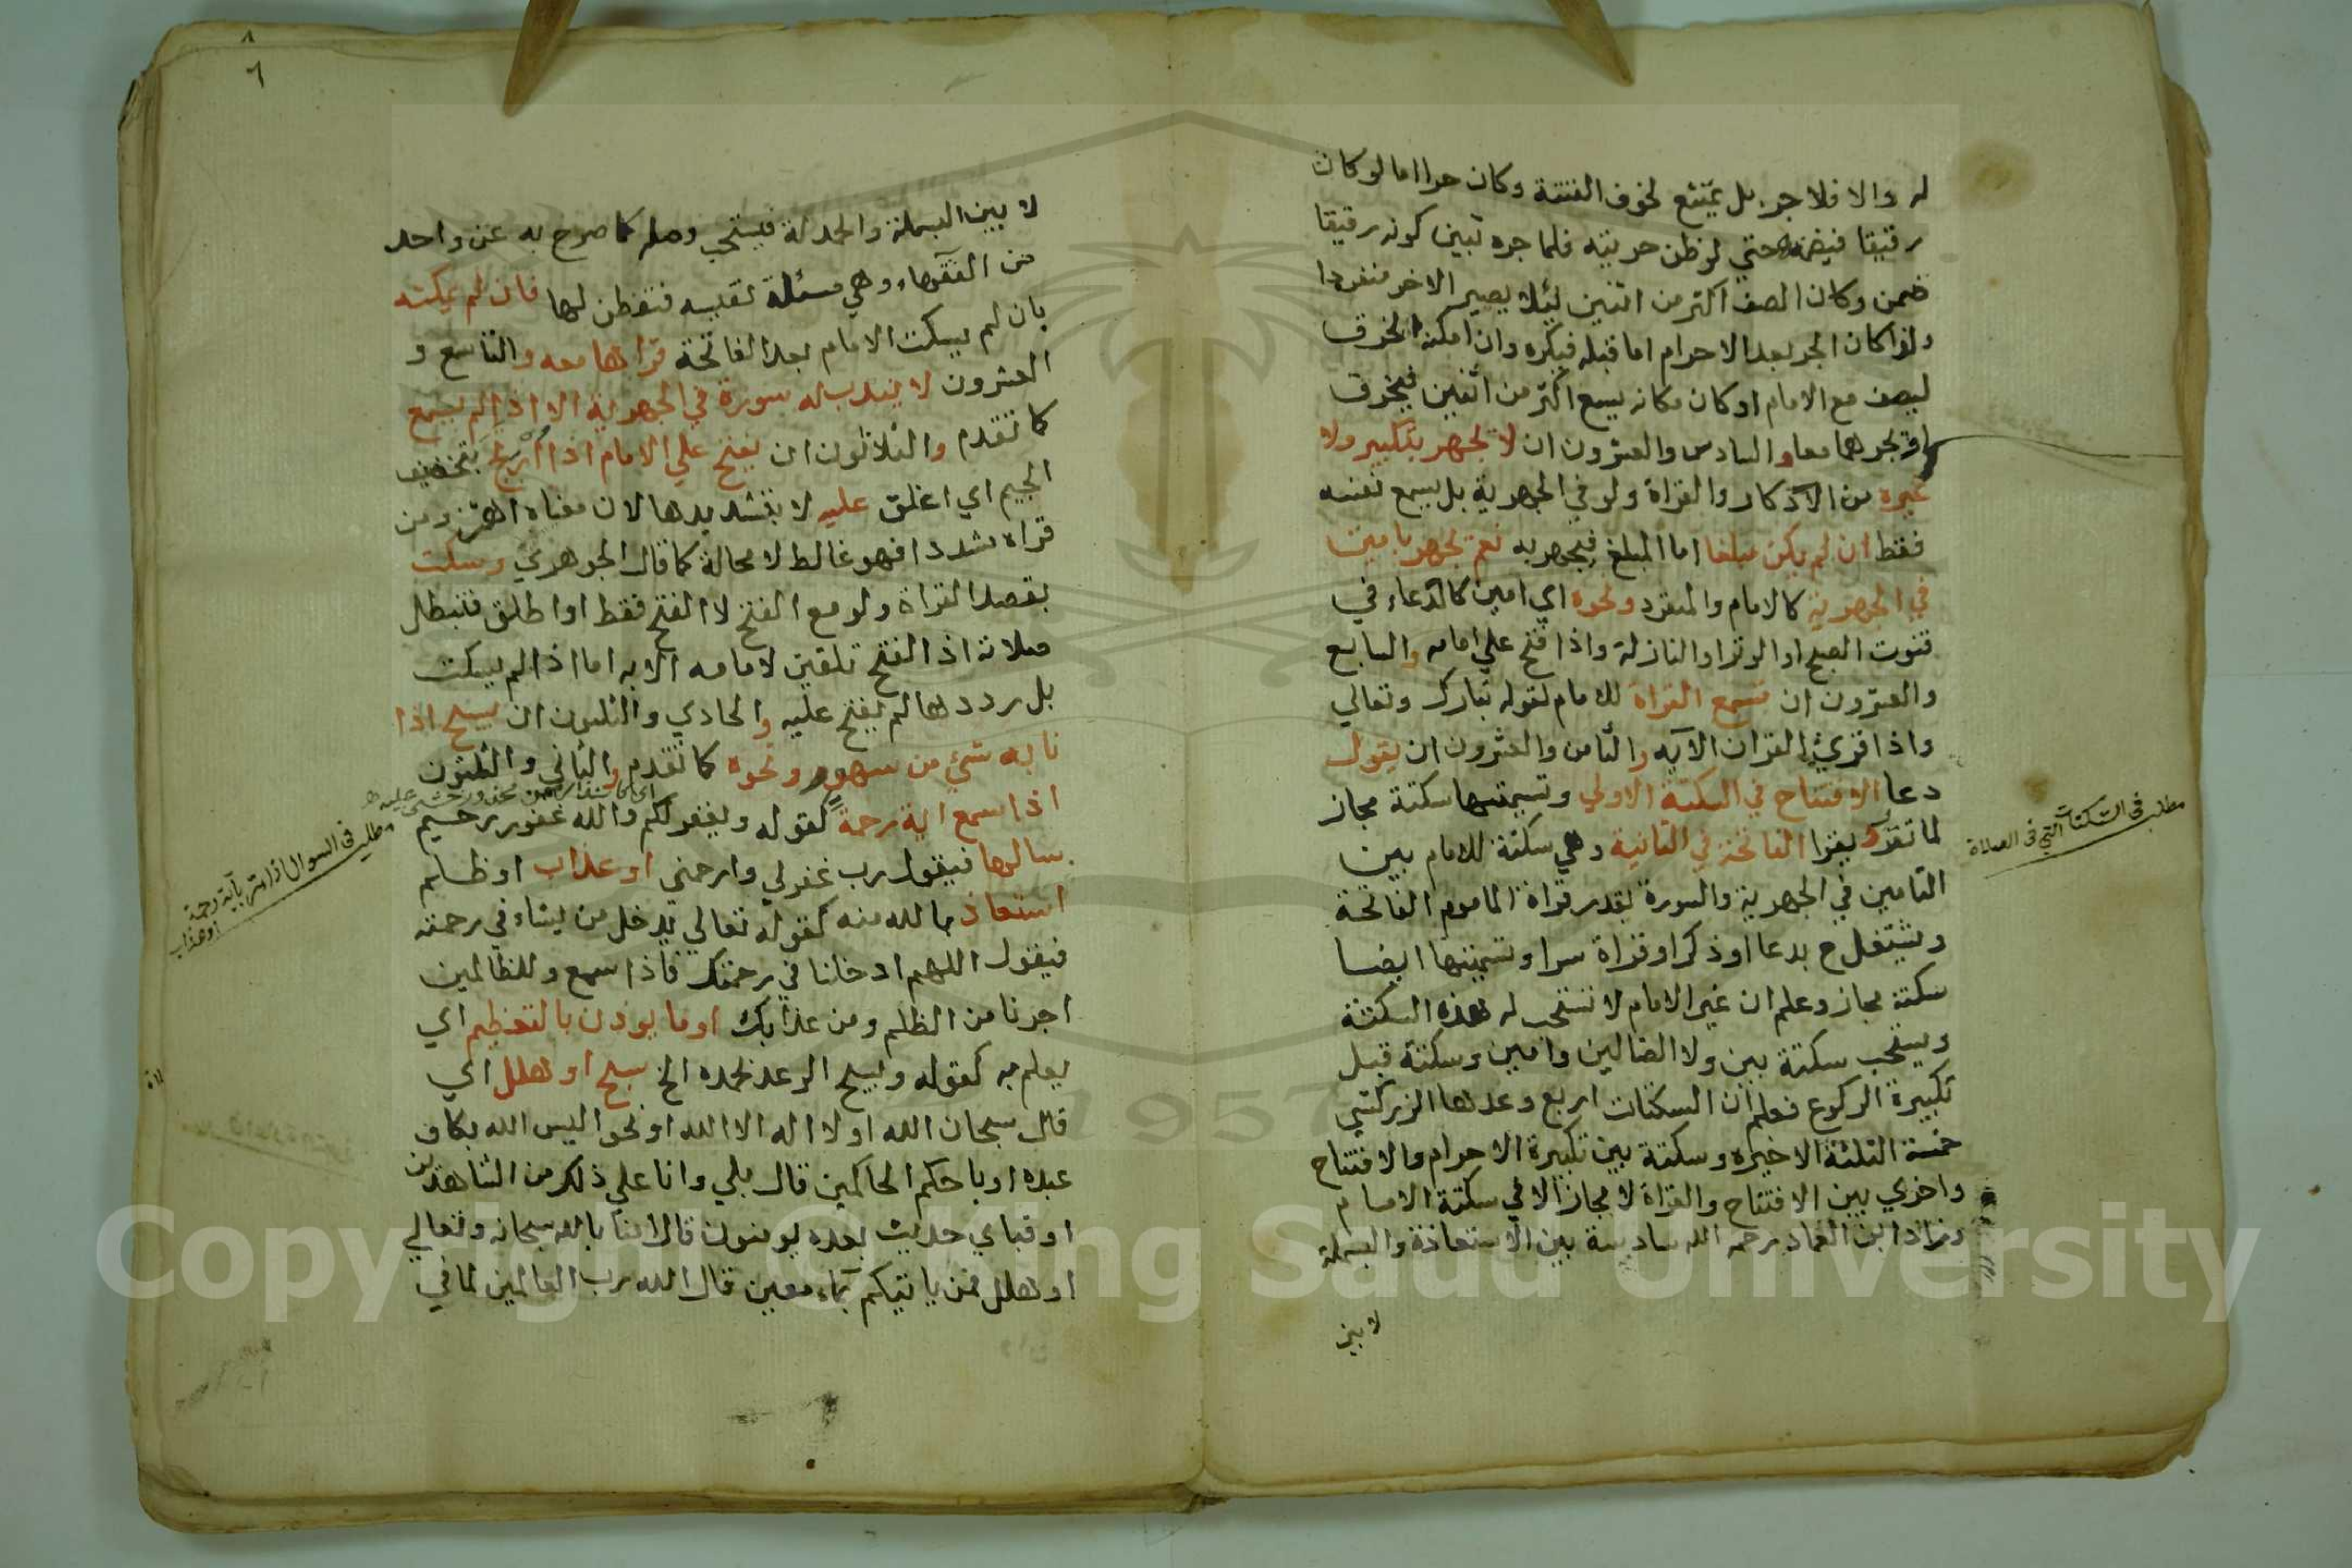 له والا فلا جر بل يمتنع لخوف الفتنة وكان حرا اما لو كان
رقيقا فيضمنه حتي لو ظن حريته فلما جره تبين كونه رقيقا
ضمن وكان الصف اكثر من اثنين ليلا يصير الاخر منفردا
ولذا كان الجر بعد الاحرام اما قبله فيكره وان امكنه الخرق
ليصف مع الامام او كان مكانه يسع اكثر من اثنين فيخرق
او يجرهما معا والسادس والعشرون ان لا يجهر بتكبير ولا
غيره من الاذكار والقراة ولو في الجهرية بل يسمع نفسه
فقط ان لم يكن مبلغا اما المبلغ فيجهر به نعم يجهر بامين
في الجهرية كالامام والمنفرد ونحوه اي امين كالدعاء في
قنوت الصبح او الوتر او النازلة واذا فتح علي امامه والسابع
والعشرون ان تسمع القراة للامام لقوله تبارك وتعالي
واذا قرئ القران الآيه والثامن والعشرون ان يقول
دعا الافتتاح في السكتة الاولي وتسميتها سكتة مجاز
لما تقرر ويقرا الفاتحة في الثانية وهي سكتة للامام بين
التامين في الجهرية والسورة بقدر قراة الماموم الفاتحة
ويشتغل ح بدعا او ذكر او قراة سرا وتسميتها ايضا
سكتة مجاز وعلم ان غير الامام لا تستحب له هذه السكتة
ويستحب سكتة بين ولا الضالين وامين وسكتة قبل
تكبيرة الركوع فعلم ان السكتات اربع وعدها الزركشي
خمسة الثلثة الاخيره وسكتة بين تكبيرة الاحرام والافتتاح
واخري بين الافتتاح والقراة لا مجاز الا في سكتة الامام
وزاد ابن العماد رحمه الله سادسة بين الاستعاذة والبسملة
لا بين
مطلب فى السكتات التي فى الصلاة
٨
٦
لا بين البسملة والحمدلة فيستحب وصله كما صرح به غير واحد
من الفقهاء وهي مسئلة نفيسه فتفطن لها فان لم يمكنه
بان لم يسكت الامام بعد الفاتحة قراها معه والتاسع و
العشرون لا يندب له سورة في الجهرية الا اذا لم يسمع
كما تقدم والثلاثون ان يفتح علي الامام اذا ارتج بتخفيف
الجيم اي اغلق عليه لا بتشديدها لان معناه اهتز ومن
قراه مشددا فهو غالط لا محالة كما قال الجوهري وسكت
بقصد القراة ولو مع الفتح لا الفتح فقط او اطلق فتبطل
صلاته اذ الفتح تلقين لامامه الايه اما اذا لم يسكت
بل رددها لم يفتح عليه والحادي والثلثون ان يسبح اذا
نابه شيء من سهو ونحوه كما تقدم والثاني والثلثون
اذا سمع اية رحمة كقوله ويغفر لكم والله غفور رحيم
سالها فيقول رب غفرلي وارحمني او عذاب او ظلم
استعاذ بالله منه كقوله تعالي يدخل من يشاء في رحمته
فيقول اللهم ادخلنا في رحمتك فاذا سمع وللظالمين
اجرنا من الظلم ومن عذابك او ما يوذن بالتعظيم اي
يعلم به كقوله ويسبح الرعد بحمده الخ سبح او هلل اي
قال سبحان الله او لا اله الا الله او نحو اليس الله بكاف
عبده او باحكم الحاكمين قال بلي وانا علي ذلك من الشاهدين
او فباي حديث بعده يومنون قال امنا بالله سبحانه وتعالي
او هلل فمن ياتيكم بماء معين قال الله رب العالمين لما في
مطلب فى السوال اذا مر بآية رحمة
او عذاب
Copyright © King Saud University
1957